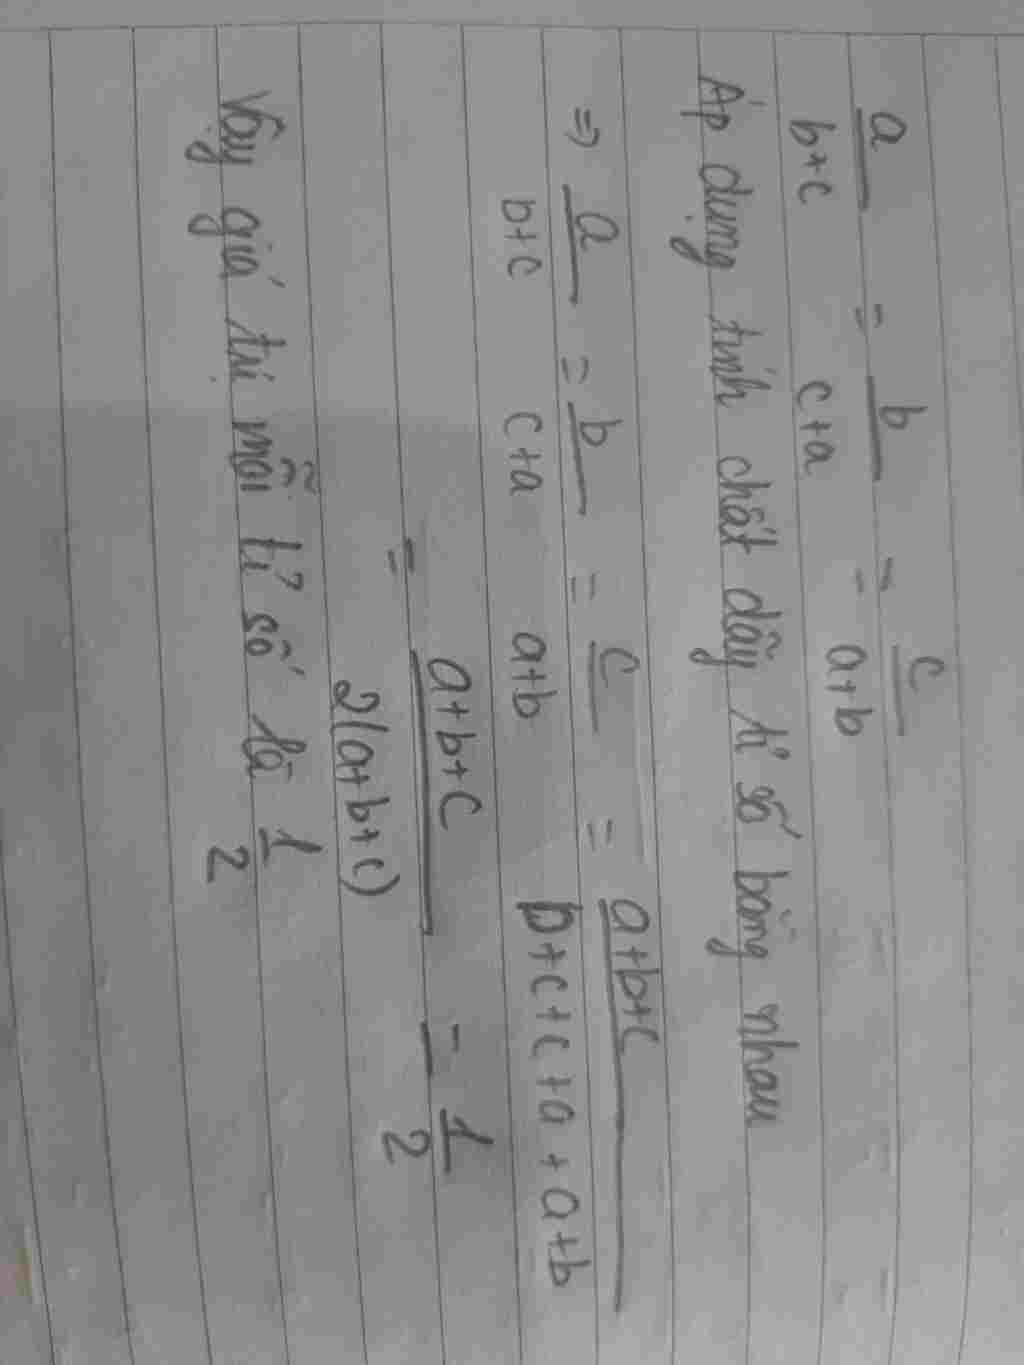 a/(b+c) = b/(c+a) = c/(a+b)
Áp dụng tính chất dãy tỉ số bằng nhau
=> a/(b+c) = b/(c+a) = c/(a+b) = (a+b+c)/(b+c+c+a+a+b)
= (a+b+c)/(2(a+b+c)) = 1/2
Vậy giá trị mỗi tỉ số là 1/2